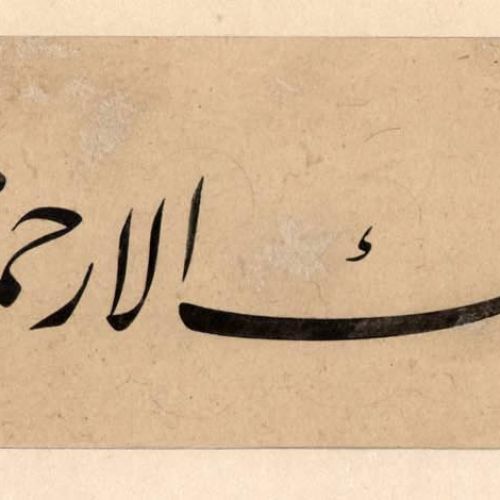 ك الا رحمـ